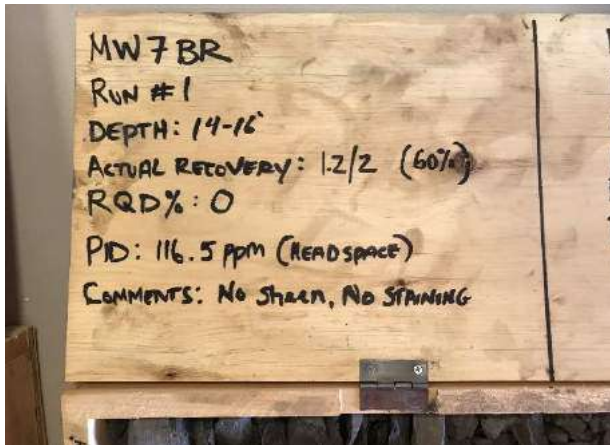 MW7BR
RUN #1
DEPTH: 14-16'
ACTUAL RECOVERY: 1.2/2 (60%)
RQD%: 0
PID: 116.5 ppm (HEADSPACE)
COMMENTS: No Sheen, No STAINING